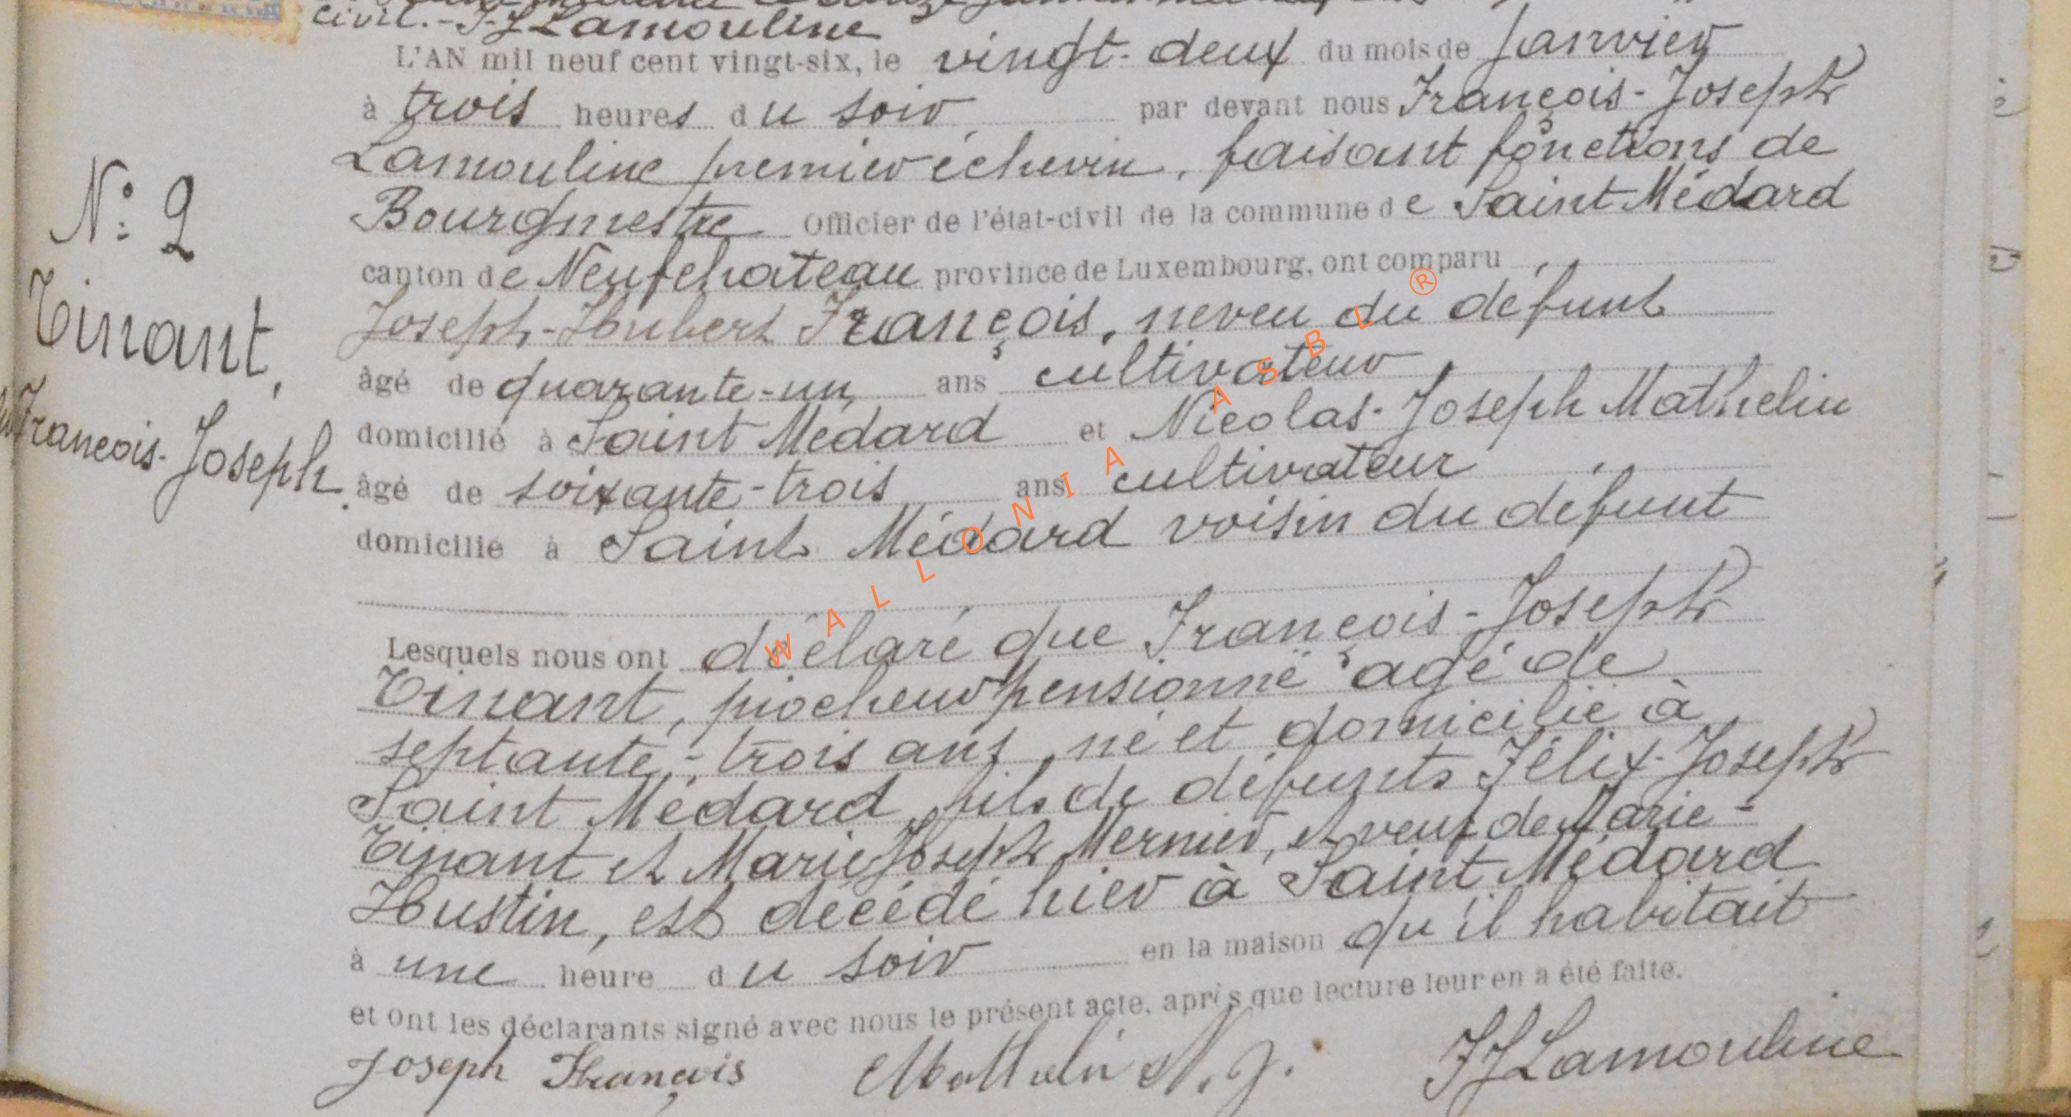 civil.- F-J Lamouline
L'AN mil neuf cent vingt-six, le vingt-deux du mois de Janvier
à trois heures du soir par devant nous François-Joseph
Lamouline premier échevin, faisant fonctions de
Bourgmestre Officier de l'état-civil de la commune de Saint Médard
canton de Neufchateau province de Luxembourg, ont comparu
Joseph-Hubert François, neveu du défunt
âgé de quarante-un ans cultivateur
domicilié à Saint Médard et Nicolas-Joseph Mathelin
âgé de soixante-trois ans cultivateur
domicilié à Saint Médard voisin du défunt
Lesquels nous ont déclaré que François-Joseph
Tinant, piocheur pensionné agé de
septante-trois ans, né et domicilié à
Saint Médard, fils de défunts Félix-Joseph
Tinant et Marie Joseph Mernier, et veuf de Marie-
Hustin, est décédé hier à Saint Médard
à une heure du soir en la maison qu'il habitait
et ont les déclarants signé avec nous le présent acte, après que lecture leur en a été faite.
Joseph François Mathelin N. J. FJLamouline
N° 2
Tinant,
François-Joseph.
WALLONIA ASBL ®